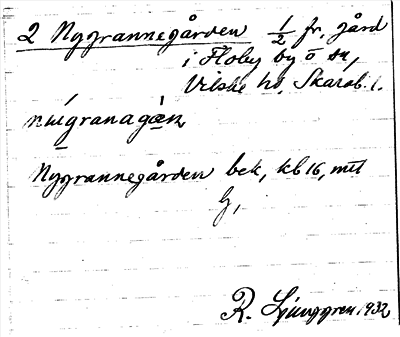 2 Nygrannegården 1/2 fr. gård
i Floby by o sn,
Vilske hd, Skarab. l.
nygranagæn
Nygrannegården bek, kb 16, mtl
G,
R. Ljunggren 1932